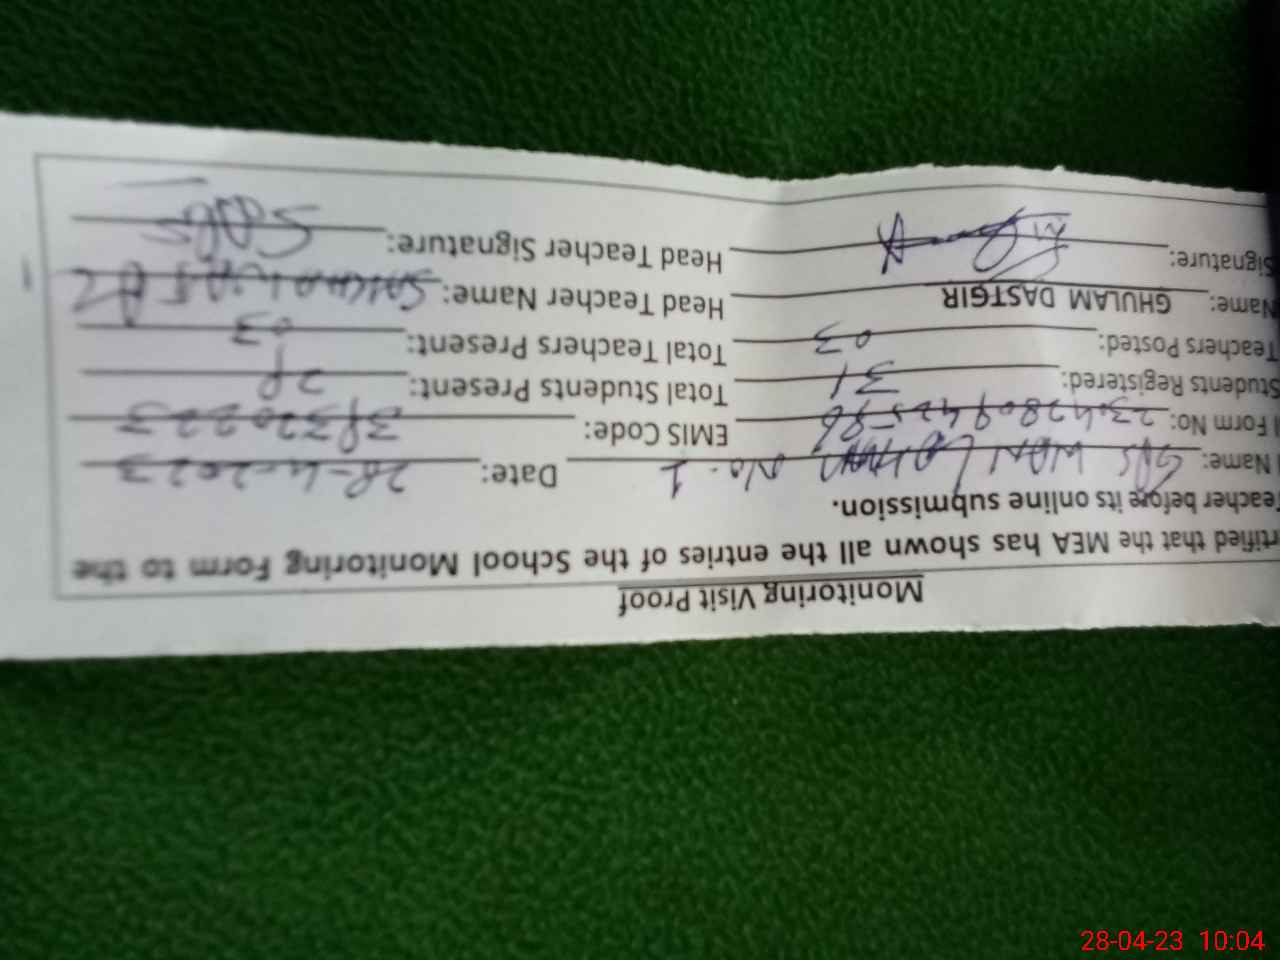 Monitoring Visit Proof
rtified that the MEA has shown all the entries of the School Monitoring Form to the
Teacher before its online submission.
Name: GPS WAN LOHAN No. 1 Date: 28-4-2023
Form No: EMIS Code: 38320223
Students Registered: 31 Total Students Present: 28
Teachers Posted: 03 Total Teachers Present: 03
Name: GHULAM DASTGIR Head Teacher Name:
Signature: Head Teacher Signature:
28-04-23 10:04